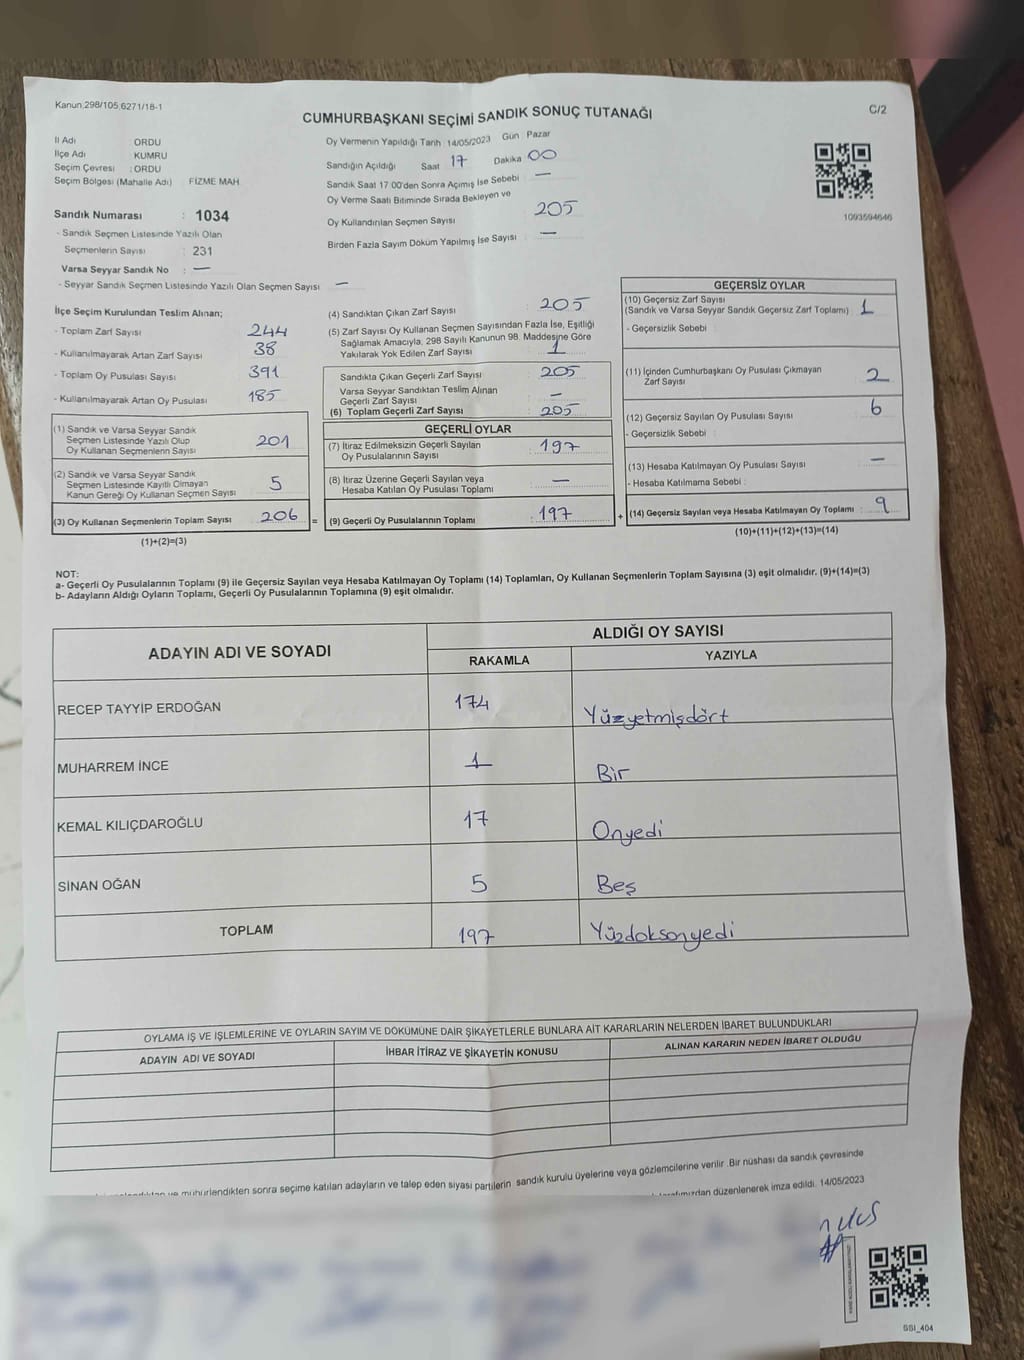 Kanun:298/105,6271/18-1
C/2
CUMHURBAŞKANI SEÇİMİ SANDIK SONUÇ TUTANAĞI
İl Adı : ORDU
İlçe Adı : KUMRU
Seçim Çevresi : ORDU
Seçim Bölgesi (Mahalle Adı) : FİZME MAH.
Sandık Numarası : 1034
- Sandık Seçmen Listesinde Yazılı Olan
Seçmenlerin Sayısı : 231
Varsa Seyyar Sandık No : —
- Seyyar Sandık Seçmen Listesinde Yazılı Olan Seçmen Sayısı : —
Oy Vermenin Yapıldığı Tarih : 14/05/2023 Gün : Pazar
Sandığın Açıldığı Saat : 17 Dakika : 00
Sandık Saat 17:00'den Sonra Açılmış İse Sebebi : —
Oy Verme Saati Bitiminde Sırada Bekleyen ve
Oy Kullandırılan Seçmen Sayısı : 205
Birden Fazla Sayım Döküm Yapılmış İse Sayısı : —
1093594646
İlçe Seçim Kurulundan Teslim Alınan;
- Toplam Zarf Sayısı : 244
- Kullanılmayarak Artan Zarf Sayısı : 38
- Toplam Oy Pusulası Sayısı : 391
- Kullanılmayarak Artan Oy Pusulası : 185
(1) Sandık ve Varsa Seyyar Sandık
Seçmen Listesinde Yazılı Olup
Oy Kullanan Seçmenlerin Sayısı : 201
(2) Sandık ve Varsa Seyyar Sandık
Seçmen Listesinde Kayıtlı Olmayan
Kanun Gereği Oy Kullanan Seçmen Sayısı : 5
(3) Oy Kullanan Seçmenlerin Toplam Sayısı : 206
(1)+(2)=(3)
(4) Sandıktan Çıkan Zarf Sayısı : 205
(5) Zarf Sayısı Oy Kullanan Seçmen Sayısından Fazla İse, Eşitliği
Sağlamak Amacıyla, 298 Sayılı Kanunun 98. Maddesine Göre
Yakılarak Yok Edilen Zarf Sayısı : 1
Sandıkta Çıkan Geçerli Zarf Sayısı : 205
Varsa Seyyar Sandıktan Teslim Alınan
Geçerli Zarf Sayısı : —
(6) Toplam Geçerli Zarf Sayısı : 205
GEÇERLİ OYLAR
(7) İtiraz Edilmeksizin Geçerli Sayılan
Oy Pusulalarının Sayısı : 197
(8) İtiraz Üzerine Geçerli Sayılan veya
Hesaba Katılan Oy Pusulası Toplamı : —
= (9) Geçerli Oy Pusulalarının Toplamı : 197
GEÇERSİZ OYLAR
(10) Geçersiz Zarf Sayısı
(Sandık ve Varsa Seyyar Sandık Geçersiz Zarf Toplamı) : 1
- Geçersizlik Sebebi :
(11) İçinden Cumhurbaşkanı Oy Pusulası Çıkmayan
Zarf Sayısı : 2
(12) Geçersiz Sayılan Oy Pusulası Sayısı : 6
- Geçersizlik Sebebi :
(13) Hesaba Katılmayan Oy Pusulası Sayısı : —
- Hesaba Katılmama Sebebi :
+ (14) Geçersiz Sayılan veya Hesaba Katılmayan Oy Toplamı : 9
(10)+(11)+(12)+(13)=(14)
NOT:
a- Geçerli Oy Pusulalarının Toplamı (9) ile Geçersiz Sayılan veya Hesaba Katılmayan Oy Toplamı (14) Toplamları, Oy Kullanan Seçmenlerin Toplam Sayısına (3) eşit olmalıdır. (9)+(14)=(3)
b- Adayların Aldığı Oyların Toplamı, Geçerli Oy Pusulalarının Toplamına (9) eşit olmalıdır.
ADAYIN ADI VE SOYADI ALDIĞI OY SAYISI
RAKAMLA YAZIYLA
RECEP TAYYİP ERDOĞAN 174 Yüzyetmişdört
MUHARREM İNCE 1 Bir
KEMAL KILIÇDAROĞLU 17 Onyedi
SİNAN OĞAN 5 Beş
TOPLAM 197 Yüzdoksanyedi
OYLAMA İŞ VE İŞLEMLERİNE VE OYLARIN SAYIM VE DÖKÜMÜNE DAİR ŞİKAYETLERLE BUNLARA AİT KARARLARIN NELERDEN İBARET BULUNDUKLARI
ADAYIN ADI VE SOYADI İHBAR İTİRAZ VE ŞİKAYETİN KONUSU ALINAN KARARIN NEDEN İBARET OLDUĞU
ve mühürlendikten sonra seçime katılan adayların ve talep eden siyasi partilerin sandık kurulu üyelerine veya gözlemcilerine verilir. Bir nüshası da sandık çevresinde
düzenlenerek imza edildi. 14/05/2023
SSI_404